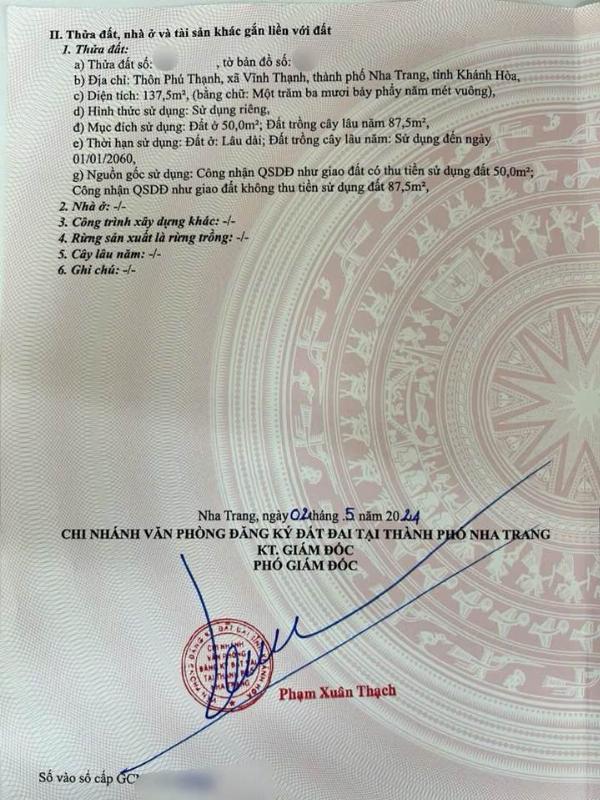 II. Thửa đất, nhà ở và tài sản khác gắn liền với đất
1. Thửa đất:
a) Thửa đất số: , tờ bản đồ số:
b) Địa chỉ: Thôn Phú Thạnh, xã Vĩnh Thạnh, thành phố Nha Trang, tỉnh Khánh Hòa,
c) Diện tích: 137,5m², (bằng chữ: Một trăm ba mươi bảy phẩy năm mét vuông),
d) Hình thức sử dụng: Sử dụng riêng,
đ) Mục đích sử dụng: Đất ở 50,0m²; Đất trồng cây lâu năm 87,5m²,
e) Thời hạn sử dụng: Đất ở: Lâu dài; Đất trồng cây lâu năm: Sử dụng đến ngày
01/01/2060,
g) Nguồn gốc sử dụng: Công nhận QSDĐ như giao đất có thu tiền sử dụng đất 50,0m²;
Công nhận QSDĐ như giao đất không thu tiền sử dụng đất 87,5m²,
2. Nhà ở: -/-
3. Công trình xây dựng khác: -/-
4. Rừng sản xuất là rừng trồng: -/-
5. Cây lâu năm: -/-
6. Ghi chú: -/-
Nha Trang, ngày 02 tháng 5 năm 2024
CHI NHÁNH VĂN PHÒNG ĐĂNG KÝ ĐẤT ĐAI TẠI THÀNH PHỐ NHA TRANG
KT. GIÁM ĐỐC
PHÓ GIÁM ĐỐC
CHI NHÁNH
VĂN PHÒNG
ĐĂNG KÝ ĐẤT ĐAI
TẠI THÀNH PHỐ
NHA TRANG
Phạm Xuân Thạch
Số vào sổ cấp GC